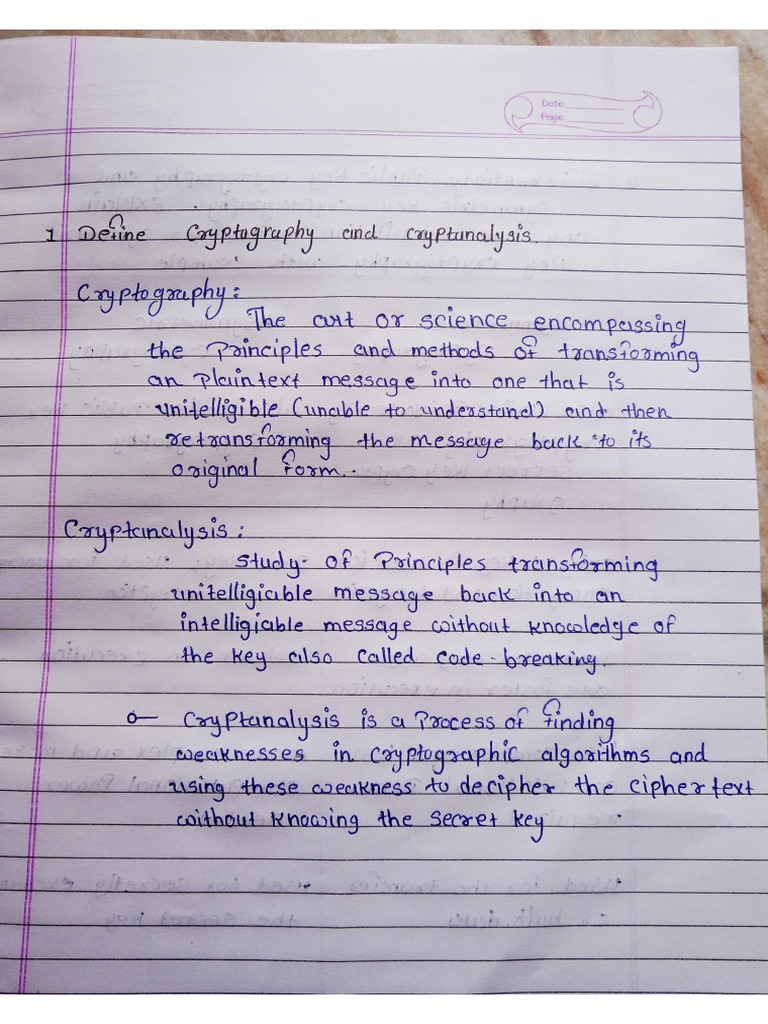 Date
Page
1 Define Cryptography and cryptanalysis.
Cryptography:
The art or science encompassing
the Principles and methods of transforming
an plaintext message into one that is
unitelligible (unable to understand) and then
retransforming the message back to its
original form.
Cryptanalysis:
Study of Principles transforming
unitelligicable message back into an
intelligicable message without knowledge of
the key also called code-breaking.
Cryptanalysis is a Process of finding
weaknesses in cryptographic algorithms and
using these weakness to decipher the ciphertext
without knowing the secret key